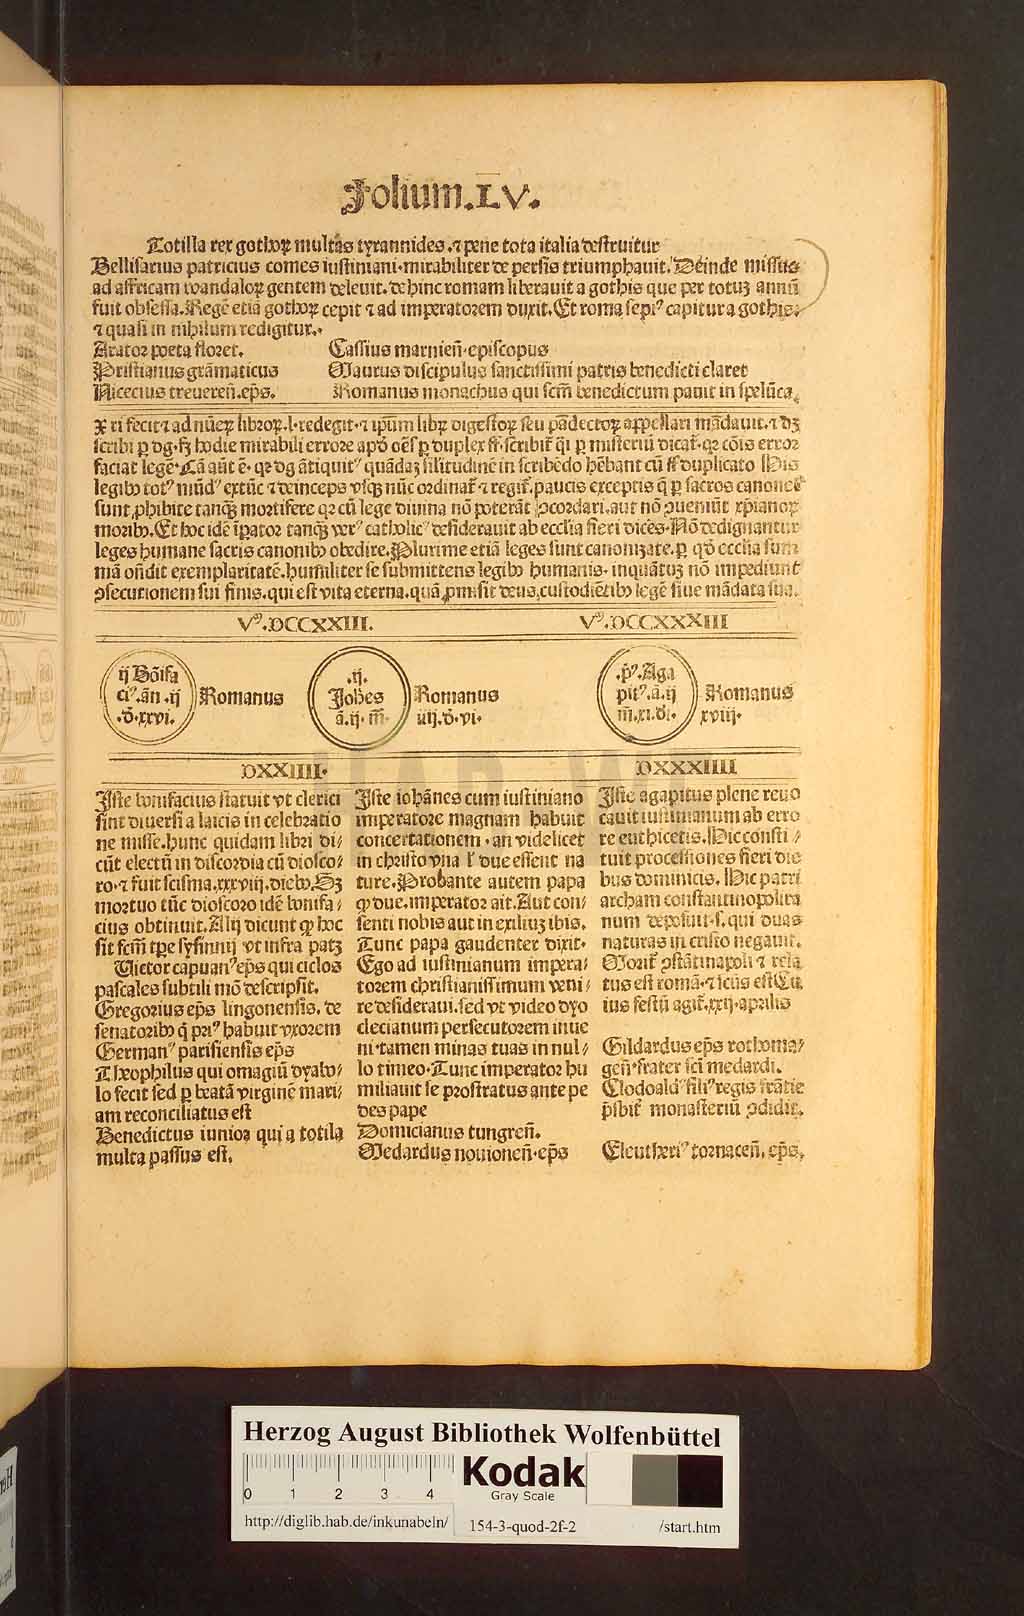 Folium.LV.
Totilla rex gothoꝝ multas tyrannides.⁊ pene tota italia destruitur
Bellisarius patricius comes iustiniani·mirabiliter de persis triumphauit. Deinde missus
ad affricam wandaloꝝ gentem deleuit.dehinc romam liberauit a gothis que per totuꝫ annū
fuit obsessa.Regē etiā gothoꝝ cepit ⁊ ad imperatorem duxit.Et roma sepiꝰ capitur a gothis.
⁊ quasi in nihilum redigitur.
Arator poeta floret.
Cassius marnien̄·episcopus
Pristianus grāmaticus
Maurus discipulus sanctissimi patris benedicti claret
Nicecius treueren̄.ep̄s.
Romanus monachus qui scm̄ benedictum pauit in spelūca.
xͥri fecit ⁊ ad nūeꝝ libroꝝ.l·redegit·⁊ ip̄um libꝝ digestoꝝ seu pādectoꝝ appellari mādauit.⁊ dꝫ
scribi ꝑ dg·sꝫ hodie mirabili errore apd̄ oēs ꝑ duplex ff·scribit̄ q̄i ꝑ misteriū dicat̄·qꝛ cōis error
faciat legē·Cā aūt ē·qꝛ dg ātiquitꝰ quādaꝫ silitudinē in scribēdo hēbant cū ff duplicato His
legibꝫ totꝰ mūdꝰ extūc ⁊ deinceps vsqꝫ nūc ordinat̄ ⁊ regit̄.paucis exceptis q̄ ꝑ sacros canones
sunt ꝓhibite tanqꝫ mortifere qꝛ cū lege diuina nō poterāt ꝯcordari.aut nō ꝯueniūt xp̄ianoꝝ
moribꝫ.Et hoc idē īpator tanqꝫ verꝰ catholicꝰ desiderauit ab ecclīa fieri dicēs·Nō dedignantur
leges humane sacris canonibꝫ obedire.Plurime etiā leges sunt canonizate.ꝑ qd̄ ecclīa sum
mā on̄dit exemplaritatē.humiliter se submittens legibꝫ humanis·inquātuꝫ nō impediunt
ꝯsecutionem sui finis.qui est vita eterna.quā ꝓmisit deus custodiētibꝫ legē siue mādata sua.
Vꝰ.DCCXXIII.
Vꝰ.DCCXXXIII
ij Bōifa
ciꝰ.ān.ij
.d̄.xxvi.
Romanus
.ij.
Johēs
ā.ij.m̄.
Romanus
iiij.d̄.vi.
.p̄ꝰ.Aga
pitꝰ.ā.ij
m̄.xi.di.
Romanus
xviij·
DXXIIII·
DXXXIIII
Iste bonifacius statuit vt clerici
sint diuersi a laicis in celebratio
ne misse.hunc quidam libri di⸗
cūt electū in discordia cū diosco⸗
ro.⁊ fuit scisma.xxxviij.diebꝫ.Sꝫ
mortuo tūc dioscoro idē bonifa⸗
cius obtinuit.Alij dicunt ꝙ hoc
sit scm̄ tp̄e syſinnij vt infra patꝫ
Victor capuanꝰ ep̄s qui ciclos
pascales subtili mō descripsit.
Gregorius ep̄s lingonensis. de
senatoribꝫ q̄ priꝰ habuit vxorem
Germanꝰ parisiensis ep̄s
Theophilus qui omagiū dyabo⸗
lo fecit sed ꝑ beatā virginē mari⸗
am reconciliatus est
Benedictus iunior qui a totila
multa passus est.
Iste iohānes cum iustiniano
imperatore magnam habuit
concertationem·an videlicet
in christo vna l̄ due essent na
ture.Probante autem papa
ꝙ due.imperator ait.Aut con⸗
senti nobis aut in exiliuꝫ ibis.
Tunc papa gaudenter dixit.
Ego ad iustinianum impera⸗
torem christianissimum veni⸗
re desideraui.sed vt video dyo
clecianum persecutorem inue
ni·tamen minas tuas in nul⸗
lo timeo·Tunc imperator hu
miliauit se prostratus ante pe
des pape
Domicianus tungren̄.
Medardus nouionen̄·ep̄s
Iste agapitus plene reuo
cauit iustinianum ab erro
re euthicetis.Hic consti⸗
tuit processiones fieri die
bus dominicis. Hic patri
archam constantinopolita
num deposuit·s.qui duas
naturas in cristo negauit.
Morit̄ ꝯstātinapoli ⁊ rela
tus est romā·⁊ ... est Cu
ius festū agit̄.xxij·aprilis
Gildardus ep̄s rothoma⸗
gen̄·frater sci medardi.
Clodoaldꝰ filiꝰ regis frācie
p̄sbit̄ monasteriū ꝯdidit.
Eleutheriꝰ tornacen̄. ep̄s.
HAB W
Herzog August Bibliothek Wolfenbüttel
0 1 2 3 4
Kodak
Gray Scale
http://diglib.hab.de/inkunabeln/
154-3-quod-2f-2
/start.htm